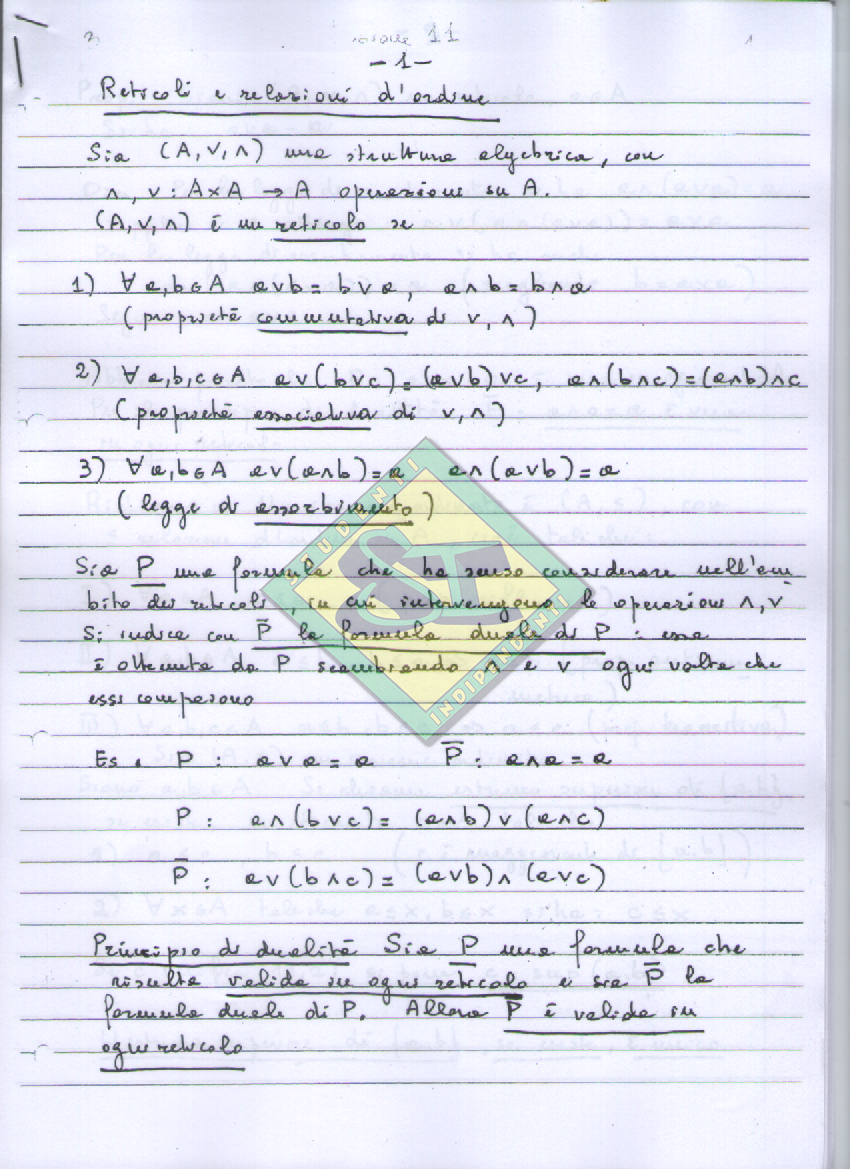 11
-1-
Reticoli e relazioni d'ordine
Sia (A, ∨, ∧) una struttura algebrica, con
∧, ∨ : A×A → A operazioni su A.
(A, ∨, ∧) è un reticolo se
1) ∀ a,b ∈ A a∨b = b∨a, a∧b = b∧a
(proprietà commutativa di ∨, ∧)
2) ∀ a,b,c ∈ A a∨(b∨c) = (a∨b)∨c, a∧(b∧c) = (a∧b)∧c
(proprietà associativa di ∨, ∧)
3) ∀ a,b ∈ A a∨(a∧b) = a a∧(a∨b) = a
(legge di assorbimento)
STUDENTI
INDIPENDENTI
Sia P una formula che ha senso considerare nell'am
bito dei reticoli, in cui intervengono le operazioni ∧, ∨
Si indica con P̅ la formula duale di P : essa
è ottenuta da P scambiando ∧ e ∨ ogni volta che
essi compaiono
Es. P : a∨a = a P̅ : a∧a = a
P : a∧(b∨c) = (a∧b)∨(a∧c)
P̅ : a∨(b∧c) = (a∨b)∧(a∨c)
Principio di dualità Sia P una formula che
risulta valida in ogni reticolo e sia P̅ la
formula duale di P. Allora P̅ è valida in
ogni reticolo